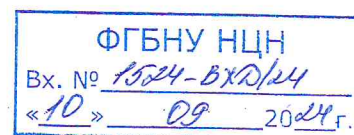 ФГБНУ НЦН
Вх. № 1524-ВХД/24
«10» 09 2024 г.